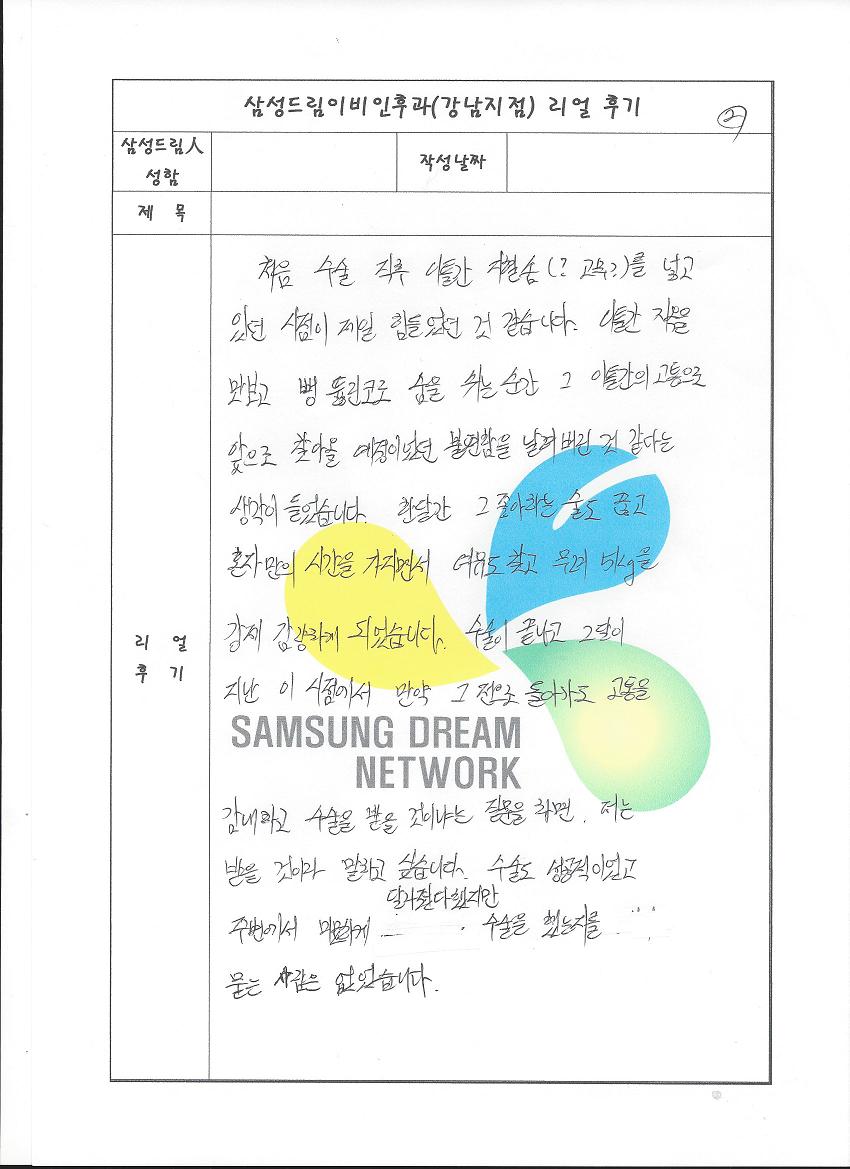 삼성드림이비인후과(강남지점) 리얼 후기
②
삼성드림人
성함
작성날짜
제 목
처음 수술 직후 이틀간 지혈솜(? 고무?)를 넣고
있던 시점이 제일 힘들었던 것 같습니다. 이틀간 지옥을
맛보고 뻥 뚫린코로 숨을 쉬는 순간 그 이틀간의 고통으로
앞으로 찾아올 예정이었던 불편함을 날려버린 것 같다는
생각이 들었습니다. 한달간 그 좋아하는 술도 끊고
혼자만의 시간을 가지면서 여유도 찾고 무려 5kg을
강제 감량하게 되었습니다. 수술이 끝나고 그달이
지난 이 시점에서 만약 그 전으로 돌아가도 고통을
리 얼
후 기
SAMSUNG DREAM
NETWORK
감내하고 수술을 받을 것이냐는 질문을 하면, 저는
받을 것이라 말하고 싶습니다. 수술도 성공적이었고
달라졌다했지만
주변에서 수술을 했는지를
묻는 사람은 없었습니다.